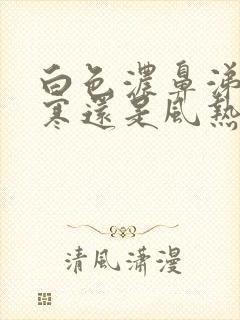 白色濃鼻涕
寒還是風熱
清風瀟漫